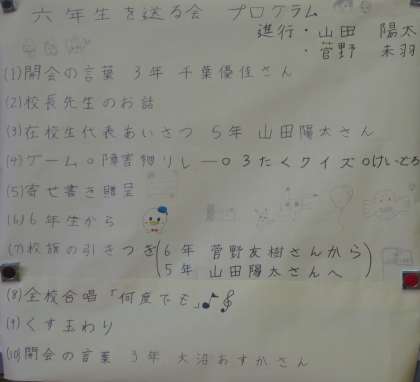 六年生を送る会 プログラム
進行・山田 陽太
・菅野 未羽
(1)開会の言葉 3年 千葉優佳さん
(2)校長先生のお話
(3)在校生代表あいさつ 5年 山田陽太さん
(4)ゲーム○障害物リレー○3たくクイズ○けいどろ
(5)寄せ書き贈呈
(6)6年生から
(7)校旗の引きつぎ(6年 菅野友樹さんから
5年 山田陽太さんへ)
(8)全校合唱「何度でも」
(9)くす玉わり
(10)閉会の言葉 3年 大沼あすかさん